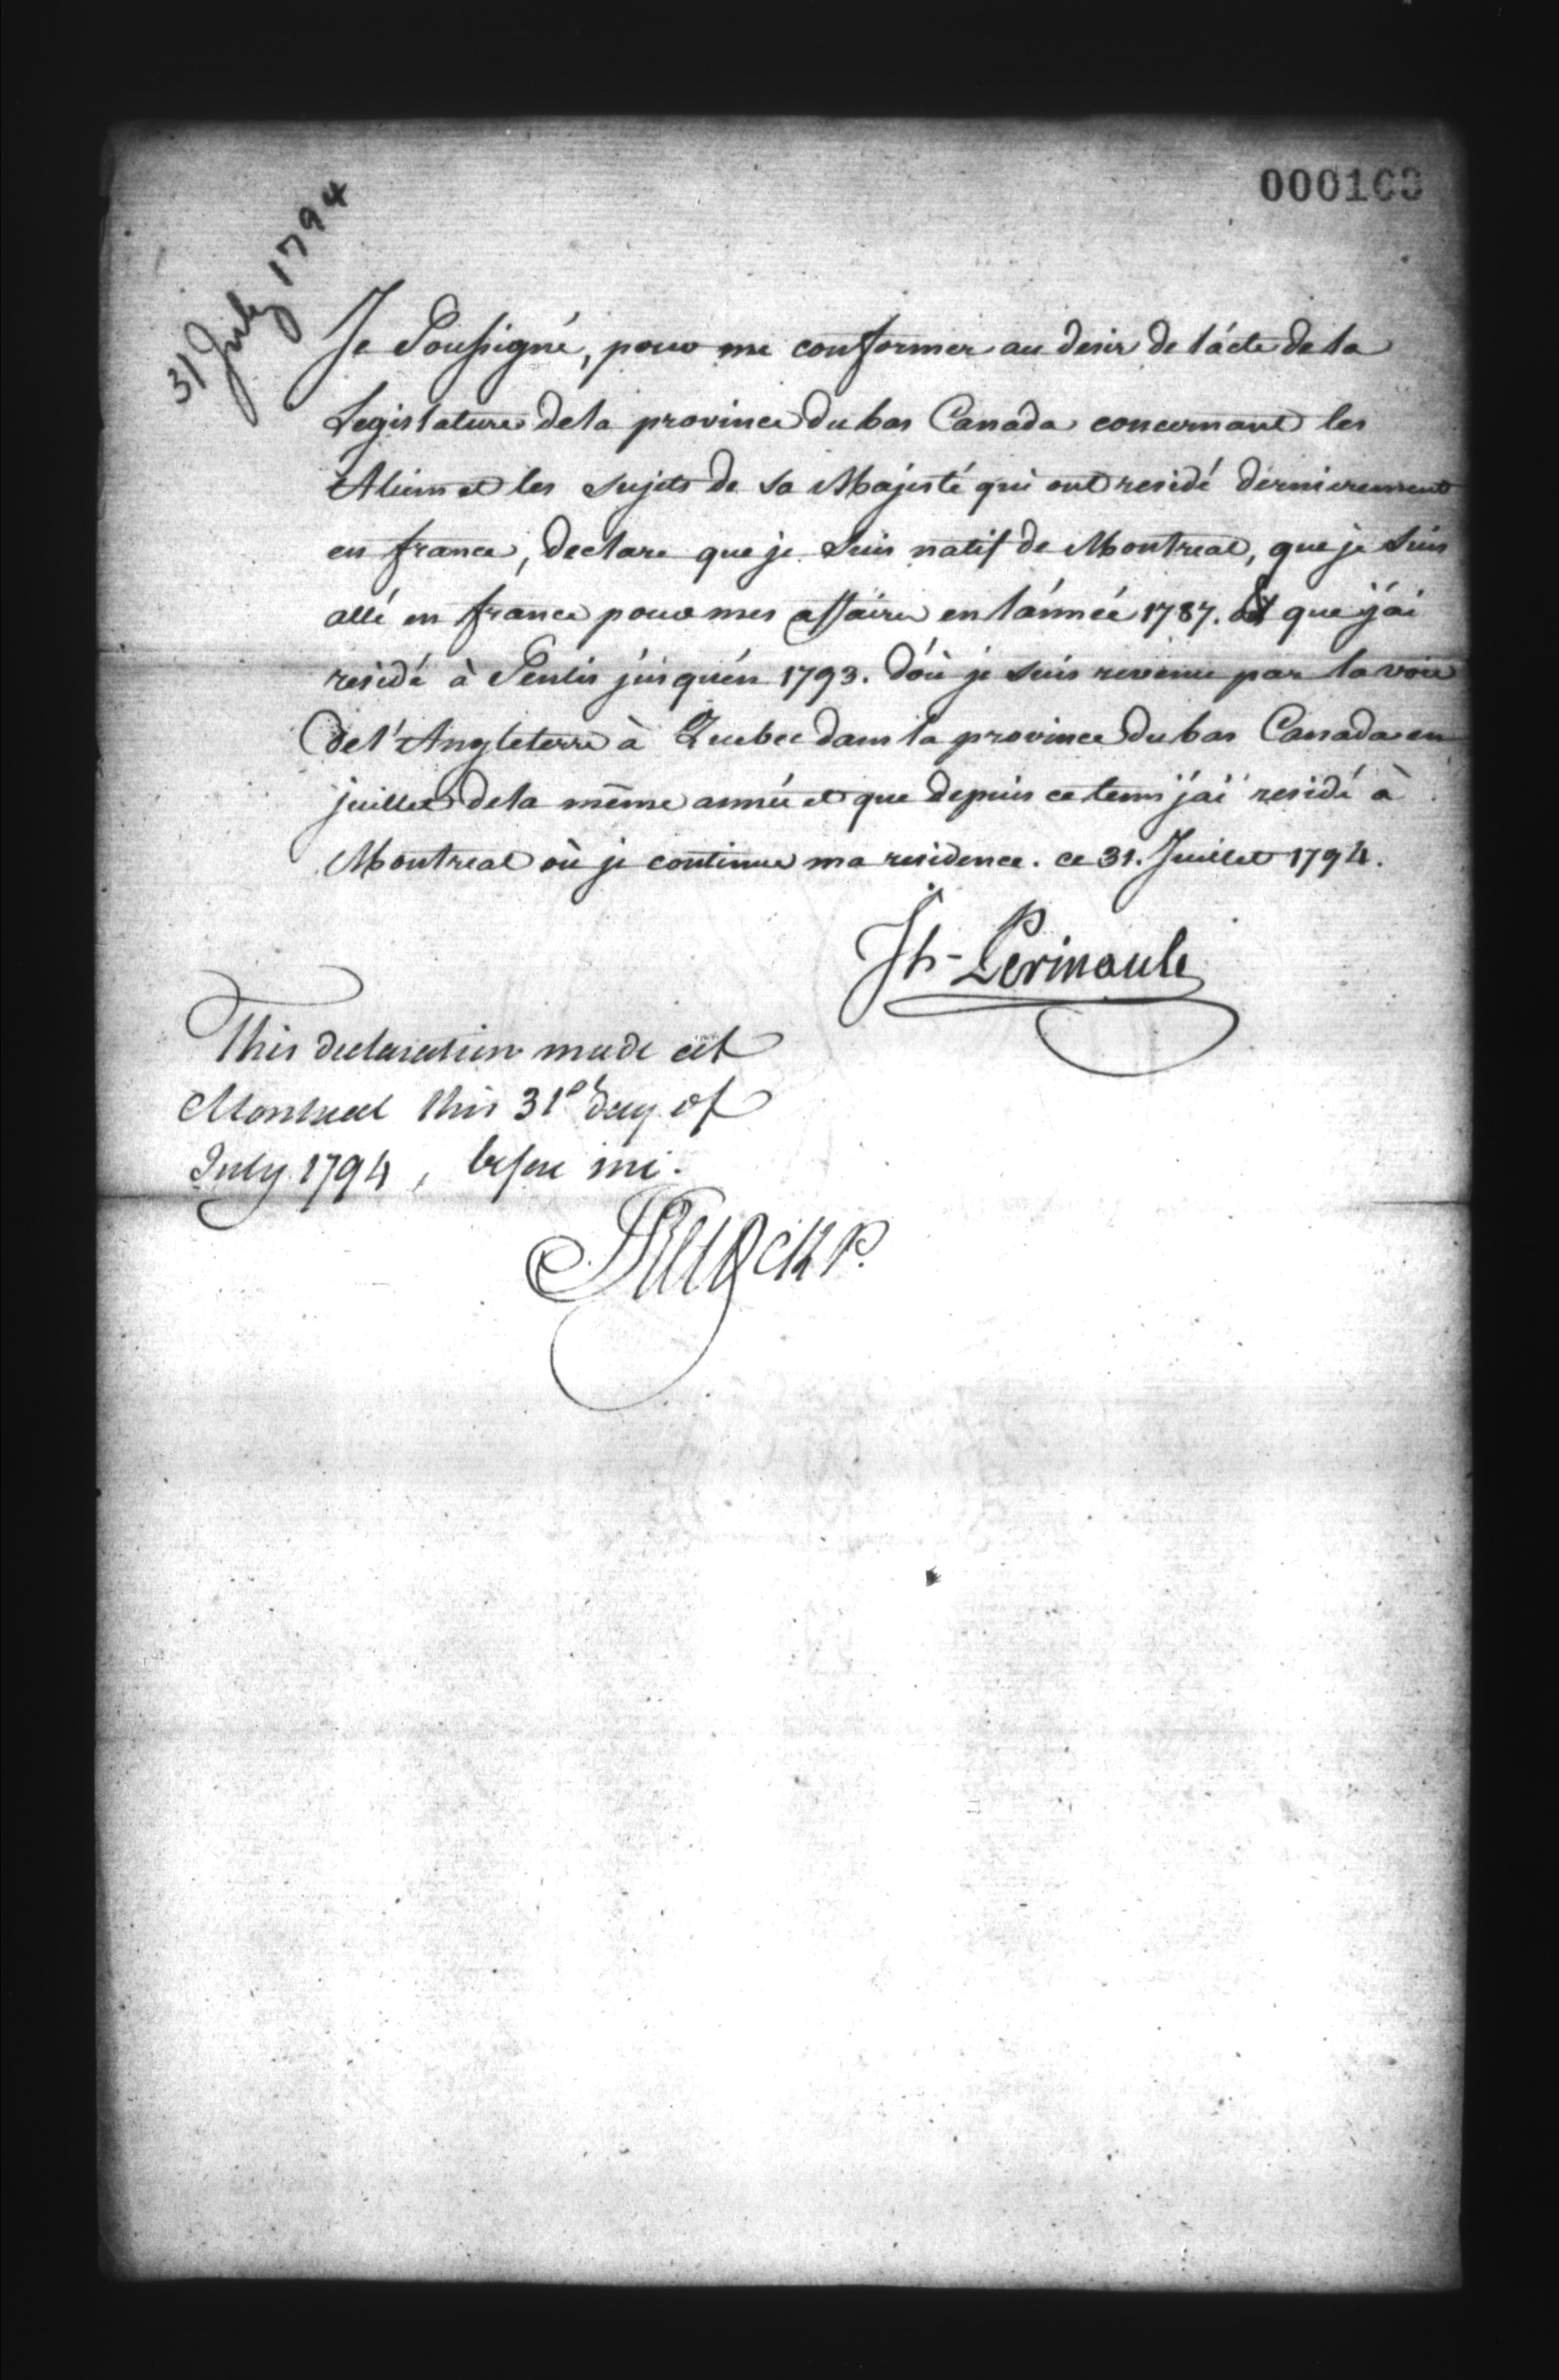 31 July 1794
Je Soussigné, pour me conformer au desir de l'acte de la
Legislature de la province du bas Canada concernant les
Aliens et les sujets de sa Majesté qui ont residé dernierement
en france, declare que je suis natif de Montreal, que je suis
allé en france pour mes affaires en l'année 1787. Et que j'ai
residé à Senlis jusqu'en 1793. d'où je suis revenu par la voie
de l'Angleterre à Quebec dans la province du bas Canada en
juillet de la même année et que depuis ce tems j'ai residé à
Montreal où je continue ma residence. ce 31. Juillet 1794.
Jh- Perinault
This declaration made at
Montreal this 31st day of
July 1794, before me.